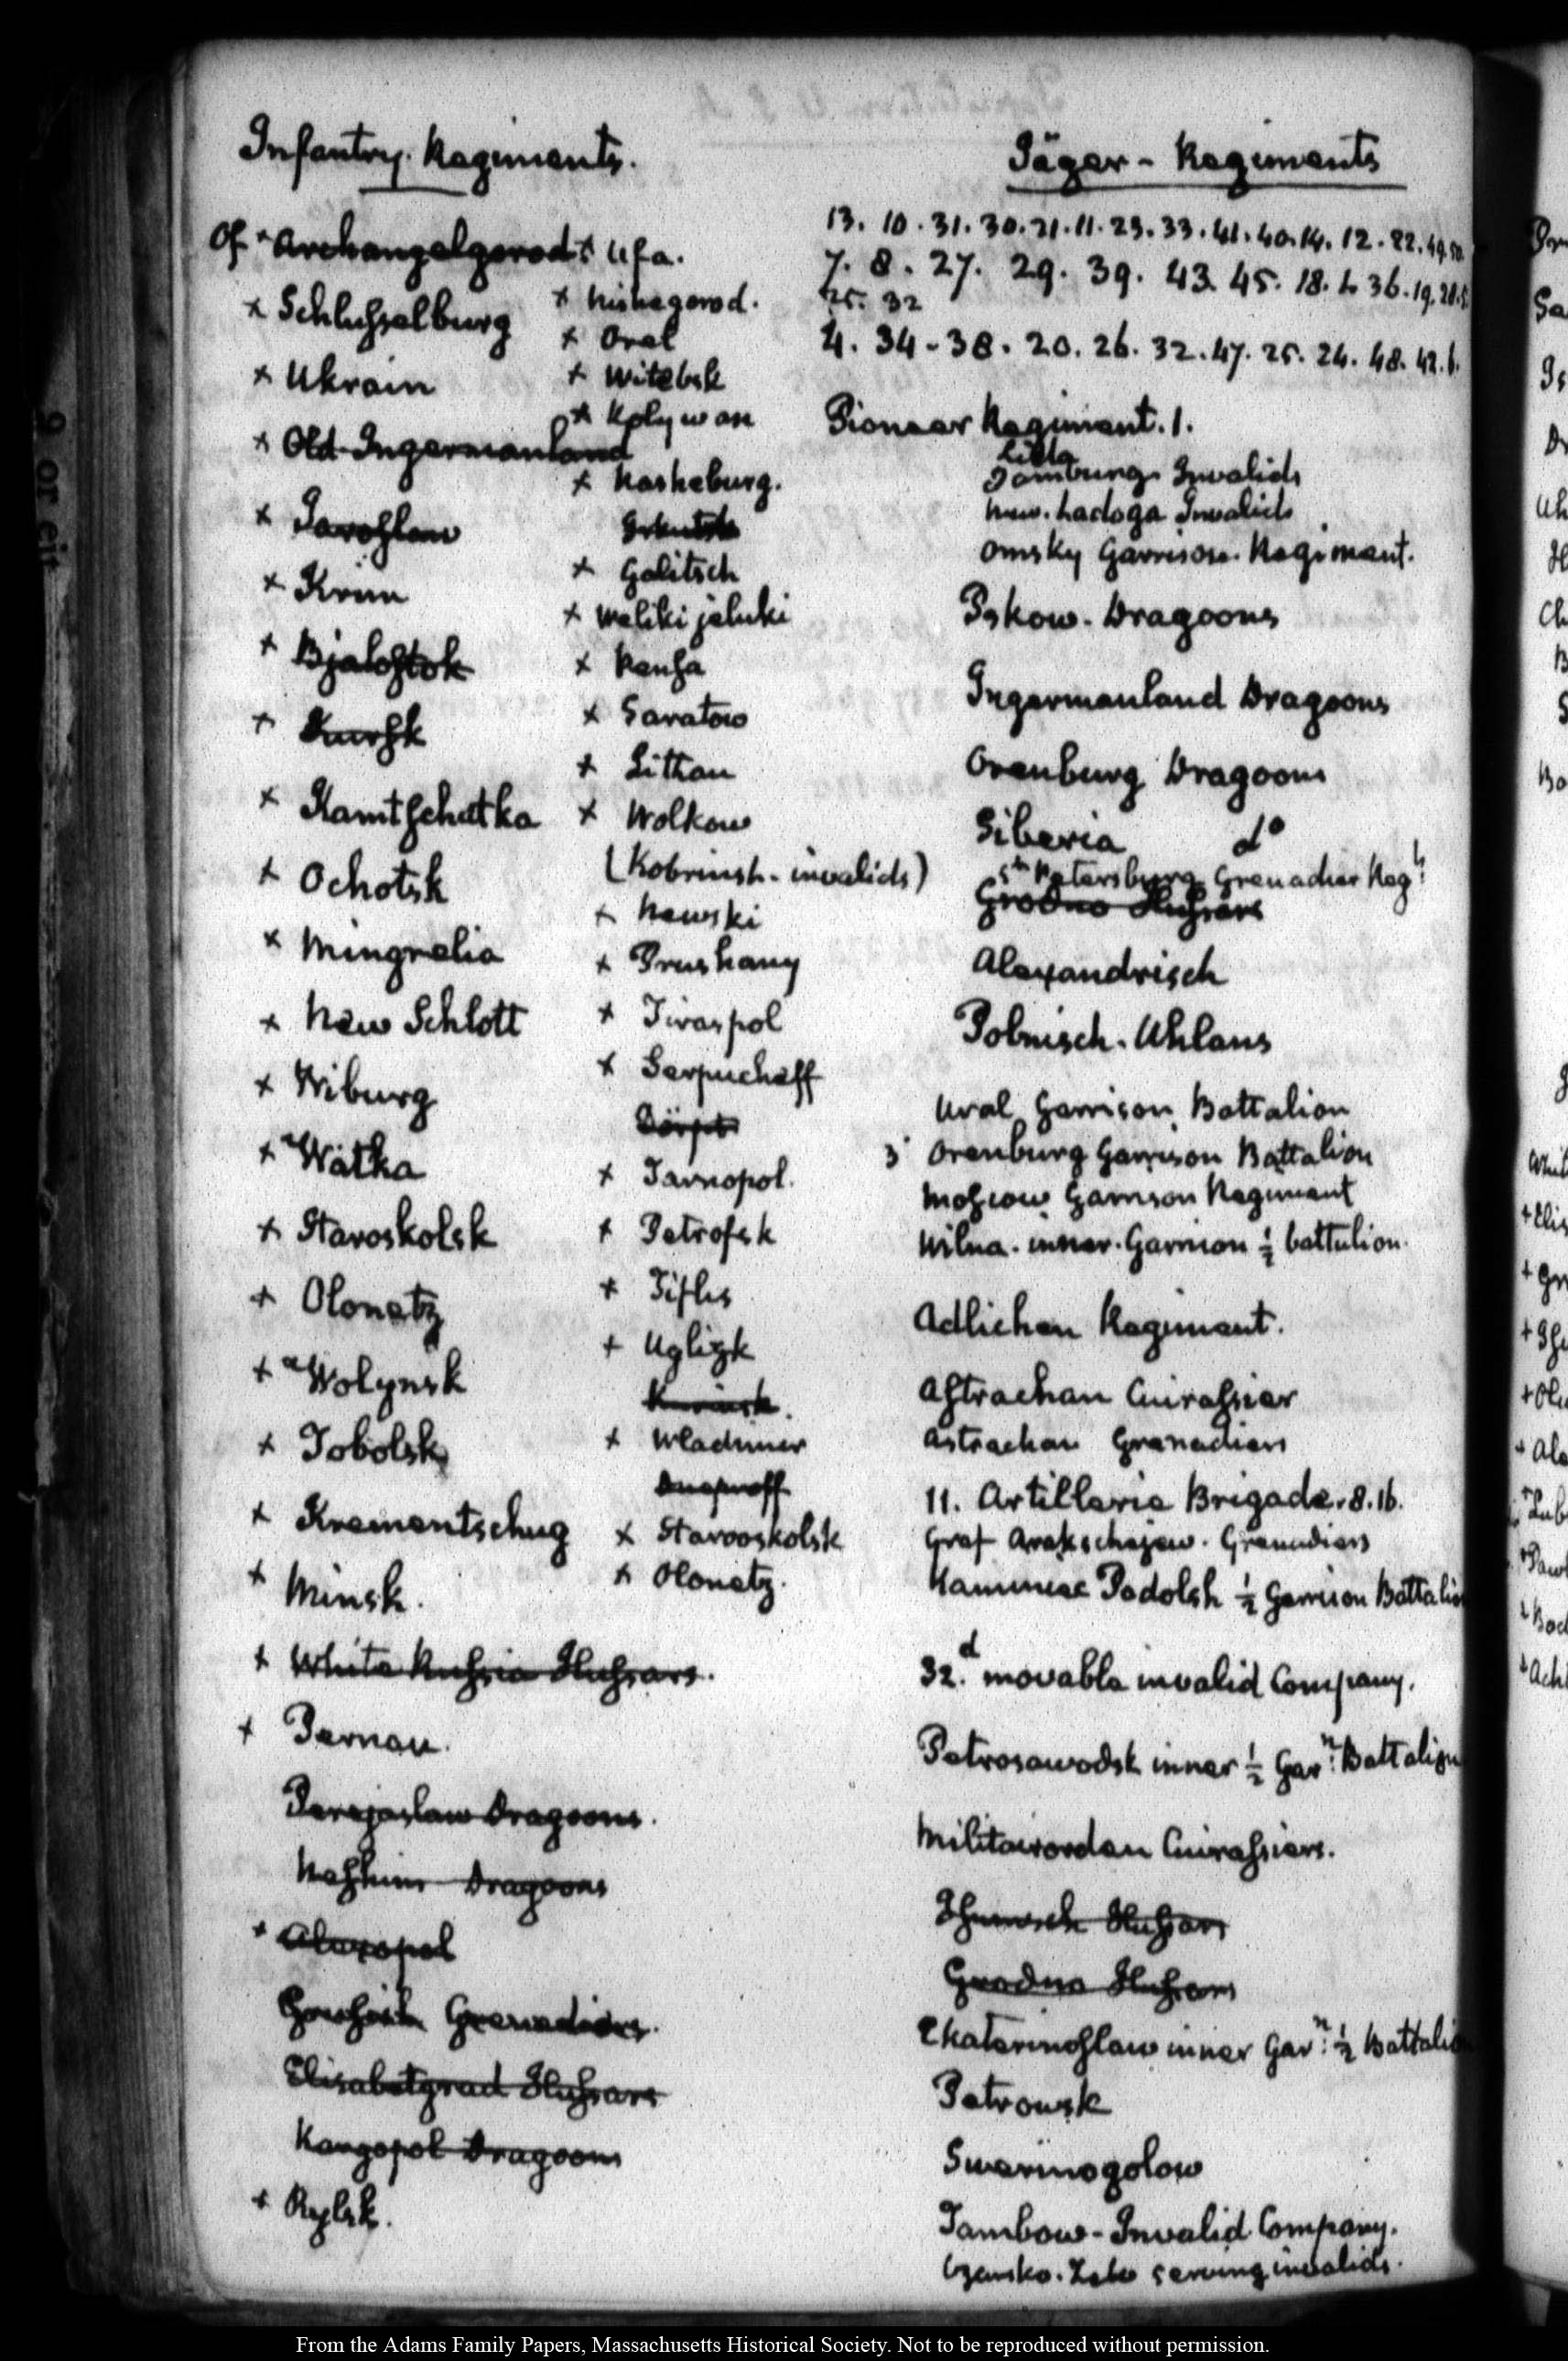 Infantry. Regiments.
Of × Archangelgorod
× Schlusselburg
× Ukrain
× Old Ingermanland
× Jaroslaw
× Krim
× Bjalostok
× Kursk
× Kamtschatka
× Ochotsk
× Mingrelia
× New Schlott
× Wiburg
× Watka
× Staroskolsk
× Olonetz
× Wolynsk
× Tobolsk
× Krementschug
× Minsk.
× White Russia Hussars.
× Pernau.
Perejaslaw Dragoons.
Dragoons
× Alexopol
Grenadiers.
Elisabetgrad Hussars
Kargopol Dragoons
× Rylsk.
× Ufa.
× Nishegorod.
× Orel
× Witebsk
× Kolywan
× Nasheburg.
Irkutsk
× Galitsch
× Welikijeluki
× Pensa
× Saratow
× Litthau
× Wolkow
(Kobrinsk. invalids)
× Newski
× Prushany
× Tiraspol
× Serpucheff
Dörpt
× Tarnopol.
× Petrofsk
× Tiflis
× Uglizk
× Wladimer
× Starooskolsk
× Olonetz.
Jäger - Regiments
13. 10. 31. 30. 21. 11. 23. 33. 41. 40. 14. 12. 22. 49. 50.
7. 8. 27. 29. 39. 43. 45. 18. 36. 19. 28.
25. 32
4. 34 - 38. 20. 26. 32. 47. 25. 24. 48. 42. 6.
Pioneer Regiment. 1.
Jamburg Invalids
New. Ladoga Invalids
Omsky Garrison Regiment.
Pskow. Dragoons
Ingermanland Dragoons
Orenburg Dragoons
Siberia do
St Petersburg Grenadier Regt:
Grodno Hussars
Alexandrisch
Polnisch. Uhlans
Ural Garrison Battalion
3 Orenburg Garrison Battalion
Moscow Garrison Regiment
Wilna. inner. Garrison ½ battalion.
Adlichen Regiment.
Astrachan Cuirassier
Astrachan Grenadiers
11. Artillerie Brigade. 8. 16.
Graf Arakschejew. Grenadiers
Kaminiec Podolsk ½ Garrison Battalion
32.d movable invalid Company.
Petrosawodsk inner ½ Garn: Battalion
Militairorden Cuirassiers.
Hussars
Grodno Hussars
Ekaterinoslaw inner Garn: ½ Battalion
Petrowsk
Swerinogolow
Tambow - Invalid Company.
serving invalids.
From the Adams Family Papers, Massachusetts Historical Society. Not to be reproduced without permission.